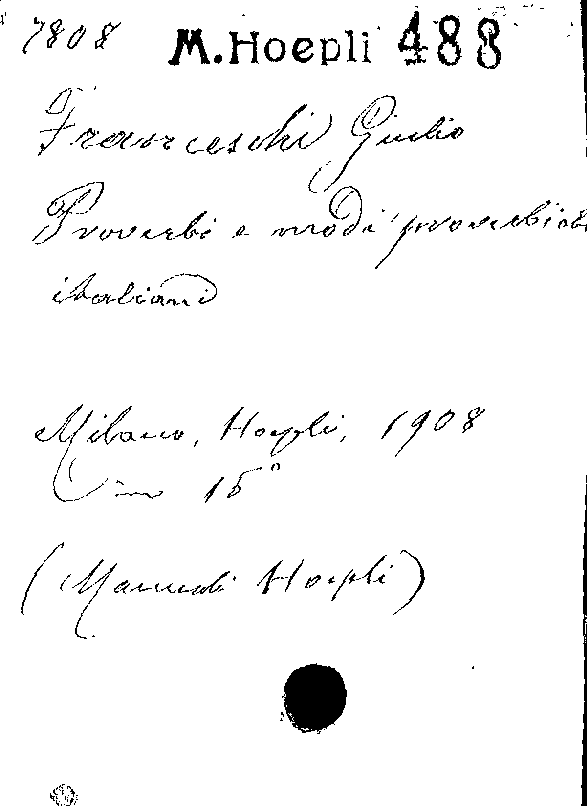 7808 M. Hoepli 488
Franceschi Giulio
Proverbi e modi proverbiali
italiani
Milano, Hoepli, 1908
in 16°
(Manuali Hoepli)